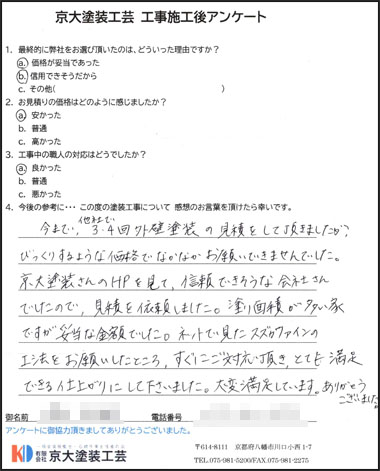 京大塗装工芸 工事施工後アンケート
1．最終的に弊社をお選び頂いたのは、どういった理由ですか？
a. 価格が妥当であった
b. 信用できそうだから
c. その他(                    )
2．お見積りの価格はどのように感じましたか？
a. 安かった
b. 普通
c. 高かった
3．工事中の職人の対応はどうでしたか？
a. 良かった
b. 普通
c. 悪かった
4．今後の参考に･･･ この度の塗装工事について 感想のお言葉を頂けたら幸いです。
今まで、他社で3・4回外壁塗装の見積をして頂きましたが、
びっくりするような価格でなかなかお願いできませんでした。
京大塗装さんのHPを見て、信頼できそうな会社さん
でしたので、見積を依頼しました。塗り面積が多い家
ですが妥当な金額でした。ネットで見たスズカファインの
工法をお願いしたところ、すぐにご対応頂き、とても満足
できる仕上がりにして下さいました。大変満足しています。ありがとう
ございました。
御名前 電話番号
アンケートに御協力頂きましてありがとうございました。
KD 有限会社 京大塗装工芸
〒614-8111 京都府八幡市川口小西 1-7
TEL.075-981-5200/FAX.075-981-2275